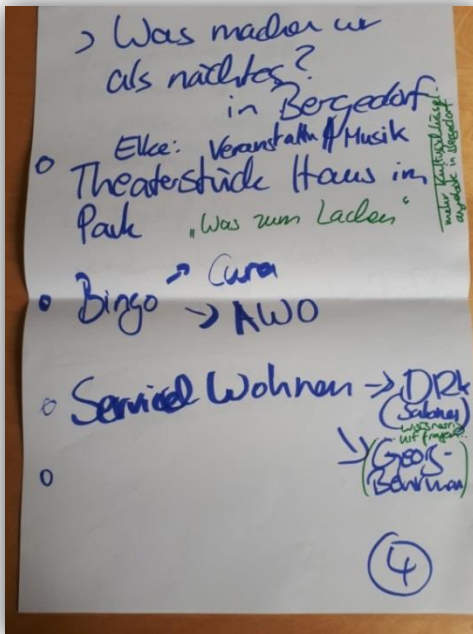 > Was machen wir
als nächtes?
in Bergedorf
Elke: Veranstaltn Musik
Theaterstück Haus im
Park "Was zum Lachen"
mehr Kulturschlüssel-
angebote in Bergedorf
Bingo → Cura
→ AWO
Service Wohnen → DRK
(Salomes
(Georg-
Behrman)
4